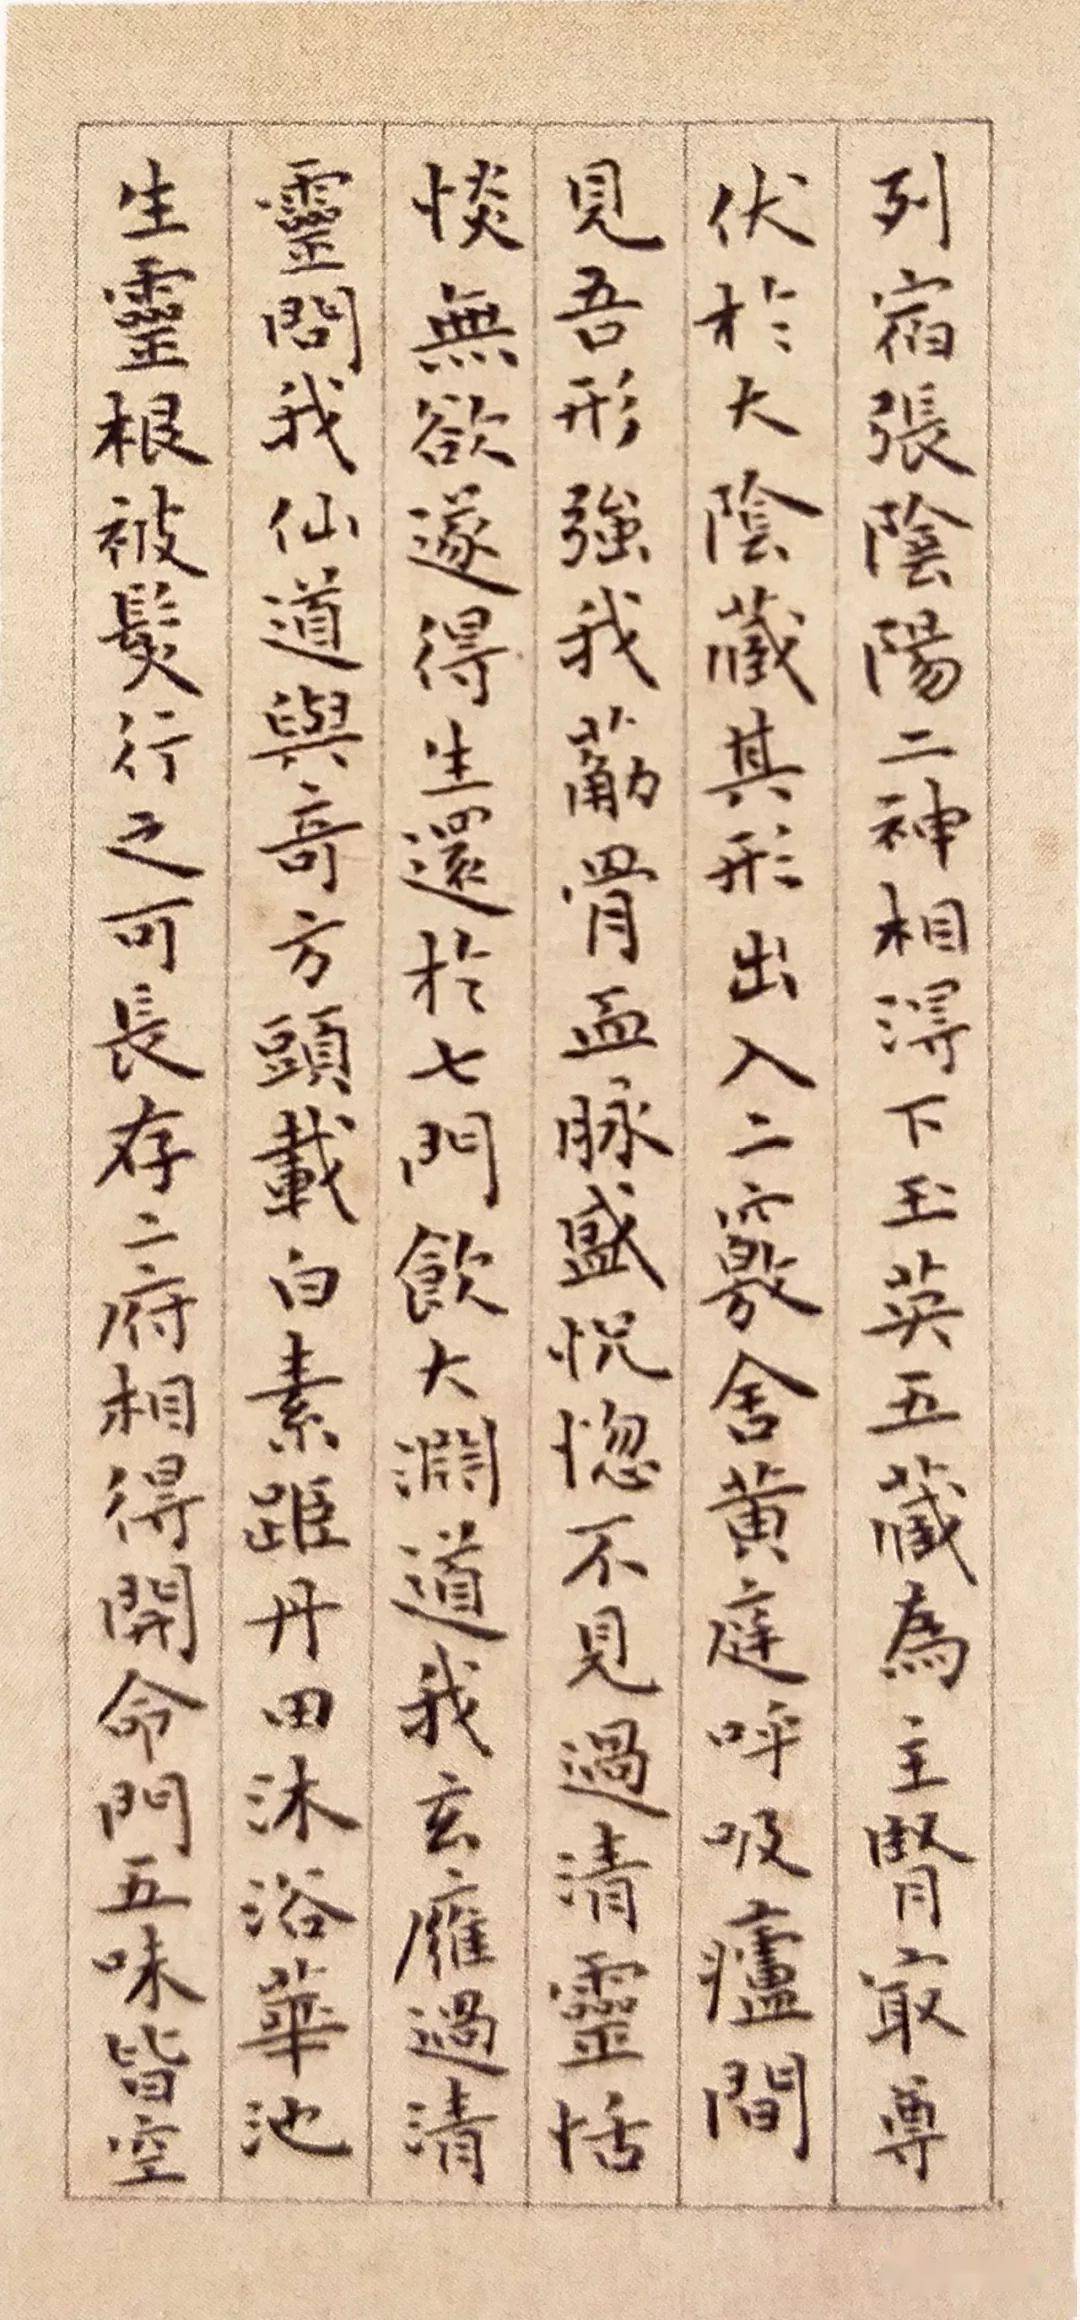 列宿張陰陽二神相得下玉英五藏為主腎㝡尊
伏於大陰藏其形出入二竅舍黃庭呼吸廬間
見吾形強我筋骨血脉盛怳惚不見過清靈恬
惔無欲遂得生還於七門飲大淵道我玄廱過清
靈問我仙道與奇方頭載白素距丹田沐浴華池
生靈根被髮行之可長存二府相得開命門五味皆空